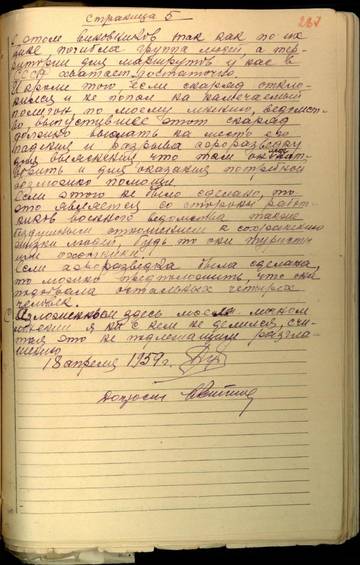 Страница 5
267
этом виновников так как по их
вине погибла группа людей, а тер-
ритории для маршрутов у нас в
СССР хватает достаточно.
Кроме того, если снаряд откло-
нился и не попал на намеченный
полигон, то по моему мнению, ведомст-
во, выпустившее этот снаряд
должно выслать на место его
падения и разрыва аэроразведку
для выяснения что там он мог нат-
ворить и для оказания потребной
возможно помощи.
Если этого не было сделано, то
это является со стороны работ-
ников военного ведомства таким
бездушным отношением к сохранению
жизни людей, будь то они туристы
или охотники.
Если аэроразведка была сделана,
то можно предположить, что она
подобрала остальных четырех
человек.
Изложенным здесь моим личным
мнением я ни с кем не делился, счи-
тая это не подлежащим разгла-
шению
18 апреля 1959г.
Допросил